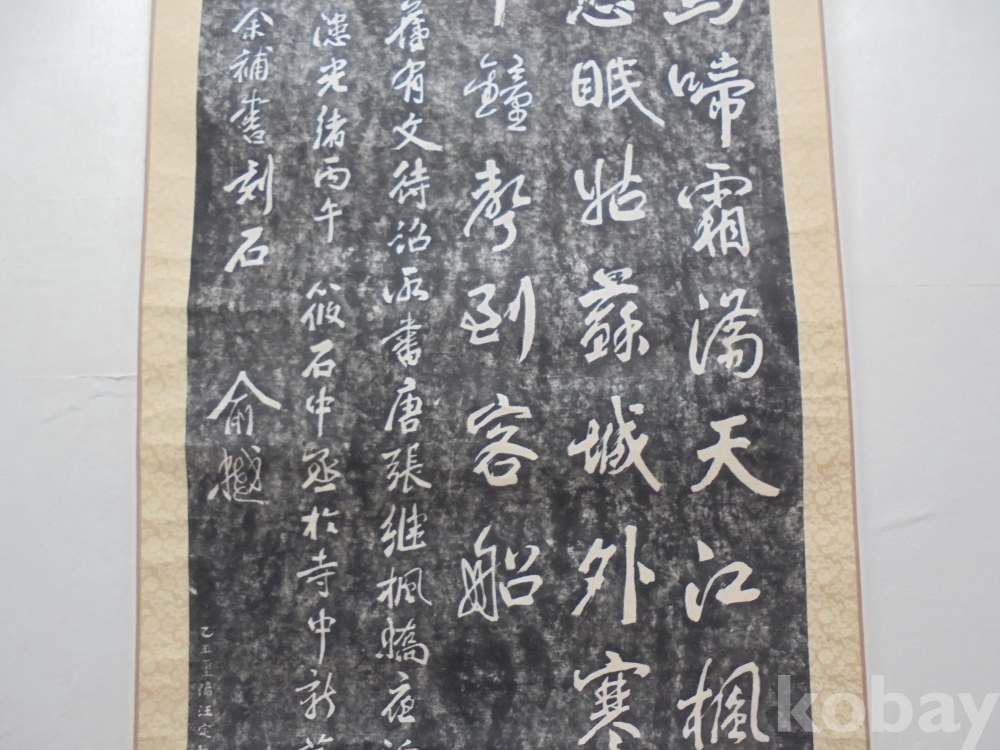 烏啼霜滿天江楓
愁眠姑蘇城外寒
鐘聲到客船
舊有文待詔所書唐張繼楓橋夜
漶光緒丙午 筱石中丞於寺中新葺
余補書刻石 俞樾
乙丑重陽汪定
kobay